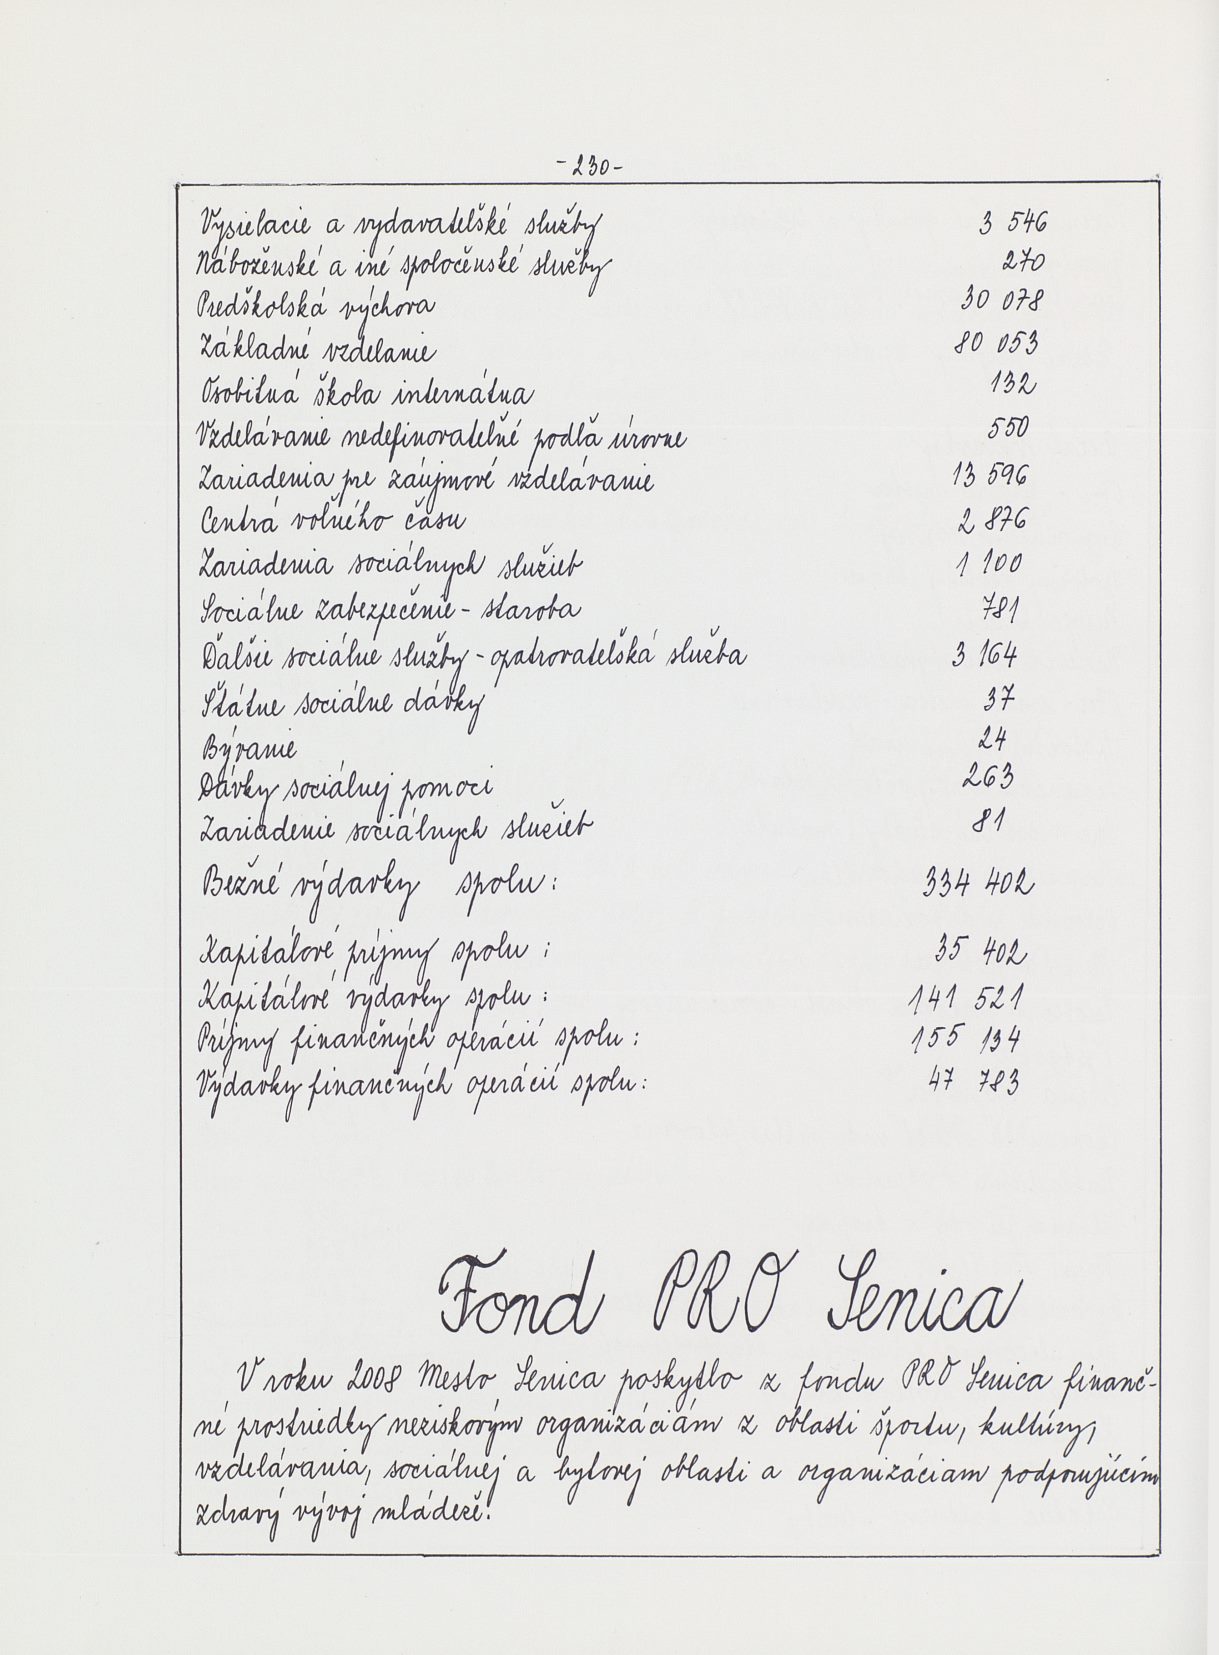 -230-
Vysielacie a vydavateľské služby 3 546
Náboženské a iné spoločenské služby 270
Predškolská výchova 30 078
Základné vzdelanie 80 053
Osobitná škola internátna 132
Vzdelávanie nedefinovateľné podľa úrovne 550
Zariadenia pre záujmové vzdelávanie 13 596
Centrá voľného času 2 876
Zariadenia sociálnych služieb 1 100
Sociálne zabezpečenie - staroba 781
Ďalšie sociálne služby - opatrovateľská služba 3 164
Štátne sociálne dávky 37
Bývanie 24
Dávky sociálnej pomoci 263
Zariadenie sociálnych služieb 81
Bežné výdavky spolu: 334 402
Kapitálové príjmy spolu: 35 402
Kapitálové výdavky spolu: 141 521
Príjmy finančných operácií spolu: 155 134
Výdavky finančných operácií spolu: 47 783
Fond PRO Senica
V roku 2008 Mesto Senica poskytlo z fondu PRO Senica finanč-
né prostriedky neziskovým organizáciám z oblasti športu, kultúry,
vzdelávania, sociálnej a bytovej oblasti a organizáciam podporujúcim
zdravý vývoj mládeže.